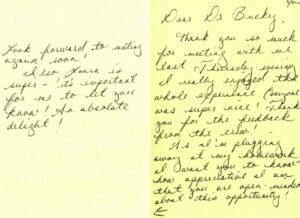 Dear Dr Buckey,
Thank you so much
for meeting with me
last Thursday evening.
I really enjoyed the
whole experience. Everyone
was super nice! Thank
you for the feedback
from the crew!
As I'm plugging
away at my homework
I want you to know
how appreciative I am
that you are open-minded
about this opportunity!
Look forward to meeting
again soon!
Also, Laura is
super - it's important
for me to let you
know! An absolute
delight!